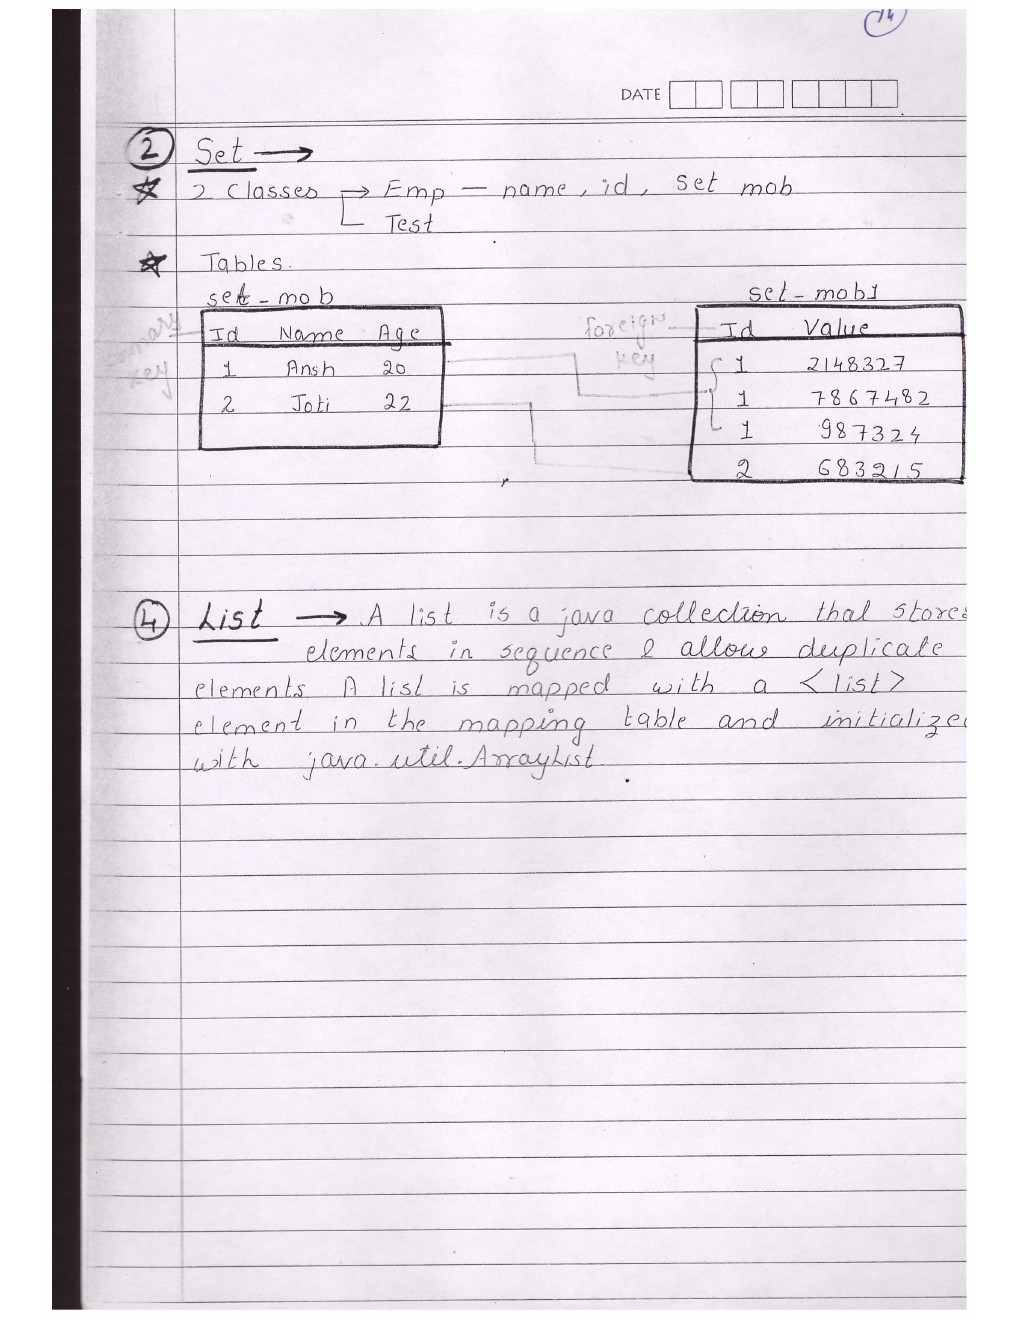 14
DATE
2 Set →
2 Classes → Emp — name, id, set mob
Test
Tables.
set - mob set - mob1
Id Name Age foreign key Id Value
key
1 Ansh 20 1 2148327
2 Joti 22 1 7867482
1 987324
2 683215
4 List → A list is a java collection that stores
elements in sequence & allow duplicate
elements A list is mapped with a <list>
element in the mapping table and initialized
with java.util.ArrayList.